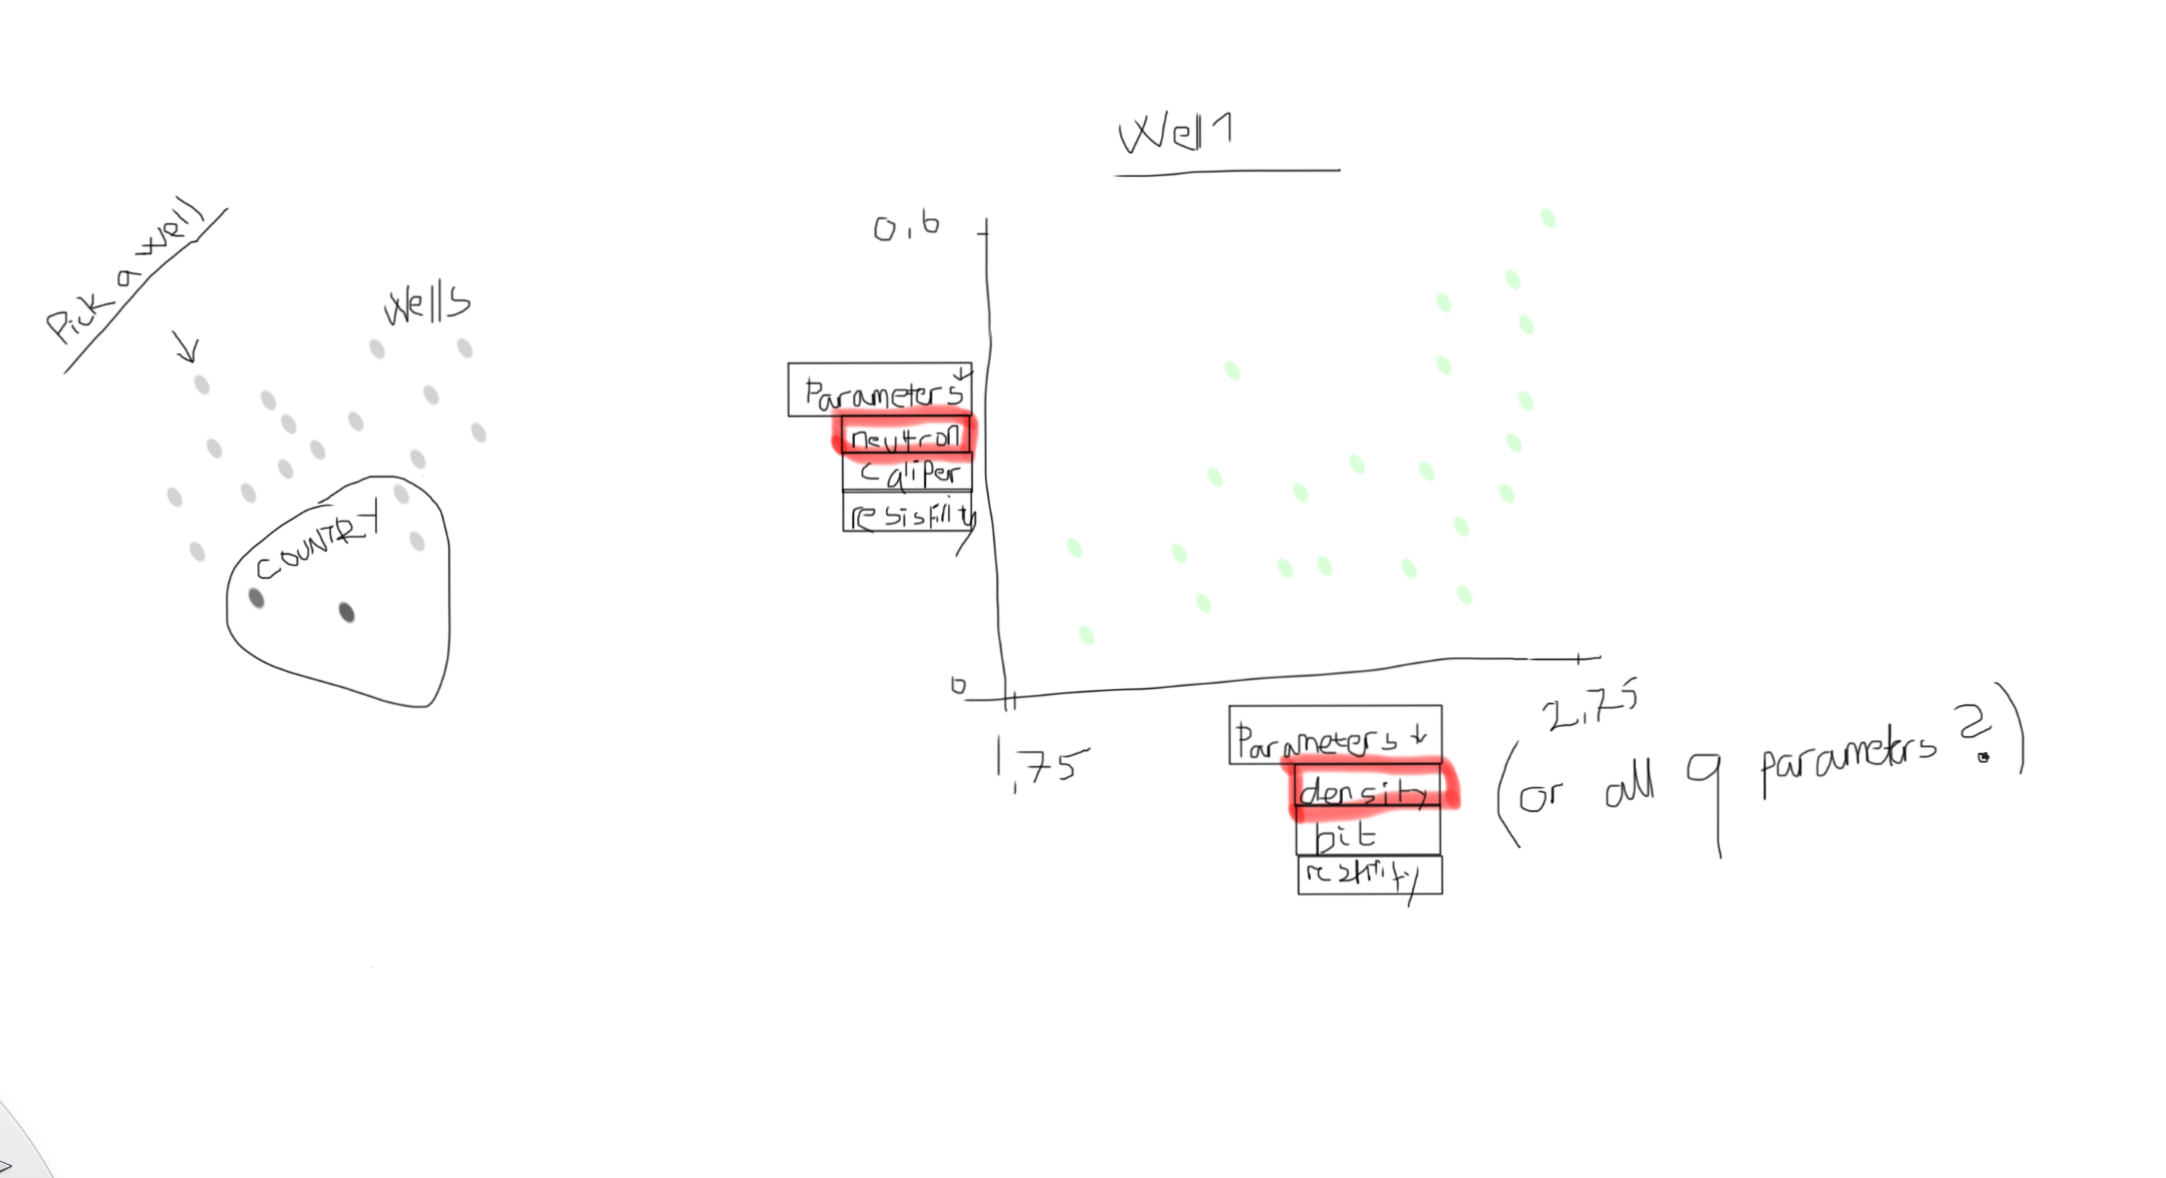 Pick a well
Wells
COUNTRY
Well 1
0,6
Parameters ↓
neutron
caliper
0
1,75
2,75
Parameters ↓
density
bit
(or all 9 parameters ?)